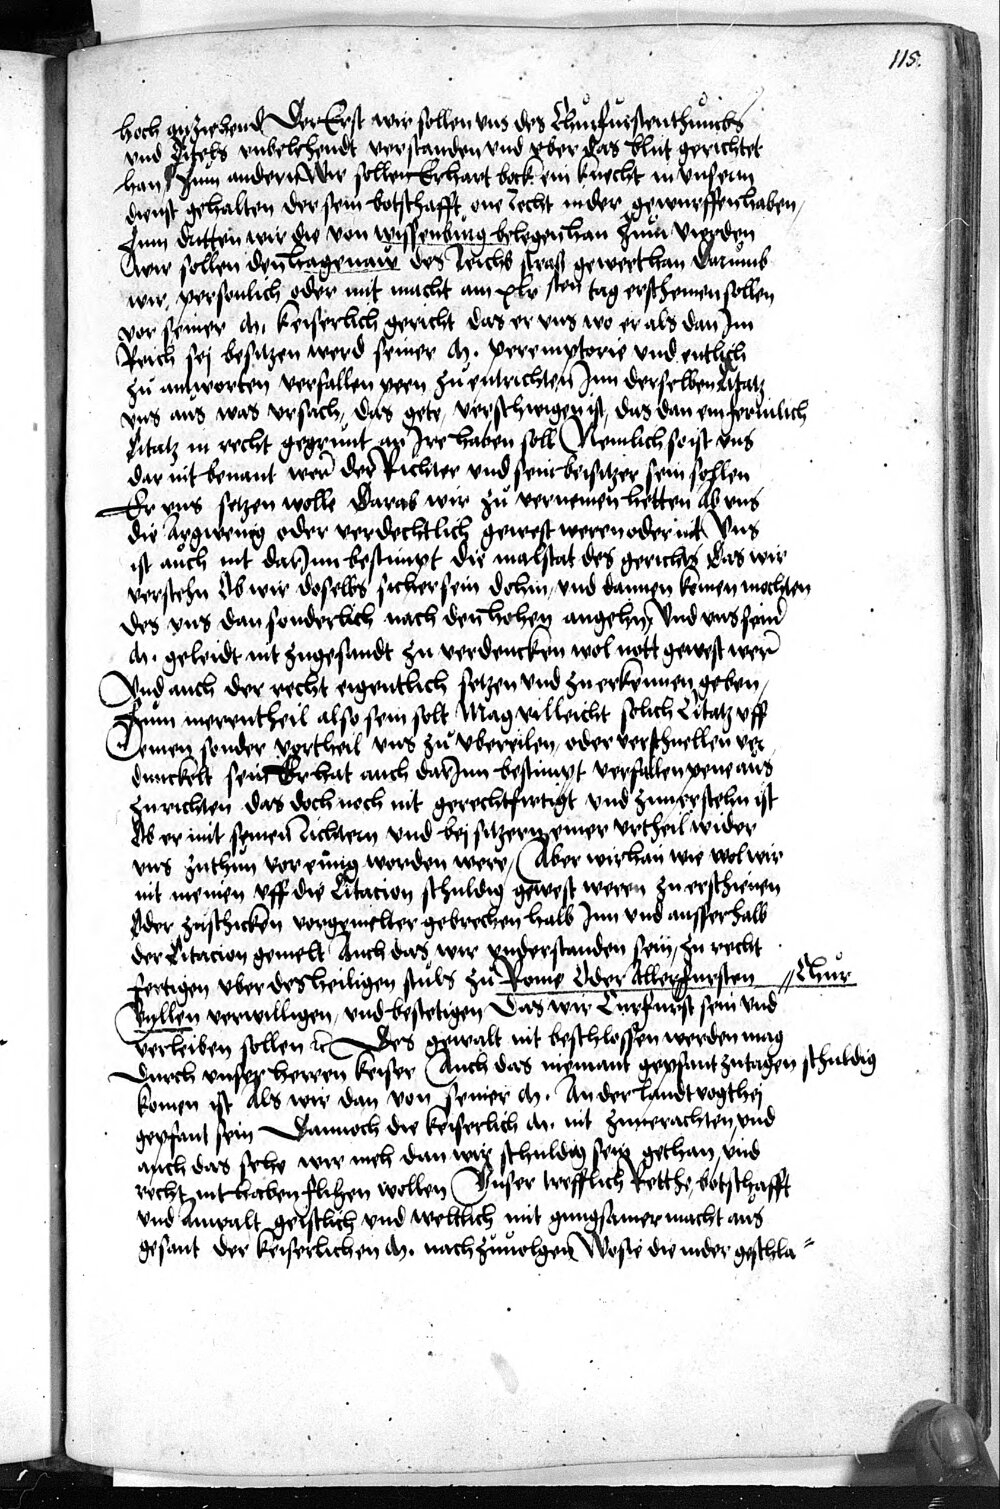 115.
hoch anziehend Der Erst wir sollen uns des Churfurstenthumbs
und Titels unbelehendt verstanden und uber das blut gerichtet
han / Zum andern Wir sollen Erhart bock ein knecht in unserm
dienst gehalten der sein botschafft one recht nider geworffen haben /
Zum dritten wir die von wissenburg belegen han Zum vierden
Wir sollen den hagenaw des Reichs straß gewert han Darumb
wir personlich oder mit macht am xlv sten tag erscheinen sollen
vor seiner M. keiserlich gericht das er uns wo er als dan Im
Reich sej besitzen werd seiner M. peremptorie und entlich
zu antworten verfallen peen zu entrichten Inn derselben Citatz
uns aus was ursach, das gete, verschwigen ist, das dan ein formlich
Citatz in recht gegrunt an Ire haben soll Nemlich so ist uns
dar nit benant wer der Richter und sein beisitzer sein sollen
Er uns setzen wolle Darab wir zu vernemen hetten Ab uns
die Argwenig oder verdechtlich gewest weren oder nit Uns
ist auch nit dar Inn bestimpt die malstat des gerichts Das wir
verstehn Ob wir doselbs sicher sein dohin, und dannen komen mochten
des uns dan sonderlich nach den hohen angehn, Und uns sein
M. geleidt mit zugesandt zu verdencken wol nott gewest wer
Und auch der recht eigentlich setzen und zu erkennen geben,
Zum merentheil also sein solt Mag villeicht solich Citatz uff
Einen sonder vortheil uns zu ubereilen, oder verschnellen ver
dunckelt sein Er hat auch dar Inn bestimpt verfallen pene aus
zurichten das doch noch nit gerechtfirtigt und zuuerstehn ist
Ob er mit seinen Richtern und bej sitzern einer urtheil wider
uns zuthun vor einig worden were, Aber wir han wie wol wir
nit meinen uff die Citacion schuldig gewest weren zu erschienen
Oder zuschicken vorgemelter gebrechen halb Inn und ausserhalb
der Citacion gemelt Auch das wir understanden sein, zu recht
fertigen uber des heiligen stuls zu Rome Oder Allerfursten // Chur
Bullen verwilligen, und bestetigen Das wir Curfurst sein und
verleiben sollen &c Des gewalt nit beschlossen werden mag
Durch unser herren keiser Auch das niemant gepfant zutagen schuldig
komen ist Als wir dan von seiner M. An der Landtvogthej
gepfant sein Dannoch die keiserlich M. nit zuuerachten, und
auch das sehe wir meh dan wir schuldig sein gethan, und
recht nit haben flihen wollen Unser trefflich Retthe, botschafft
und Anwalt geistlich und weltlich mit gnugsamer macht aus
gesant der keiserlichen M. nach zuuolgen Wo sie die nider geschla=